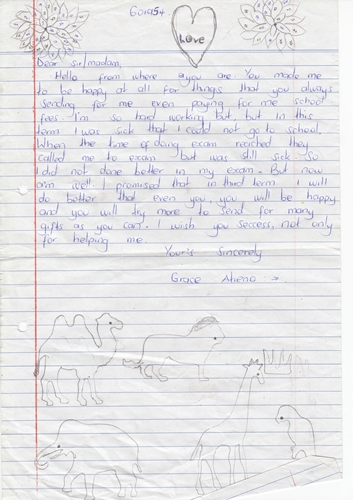 Love
Dear sir/madam,
Hello from where you are You made me
to be happy at all for things that you always
Sending for me even paying for me school
fees. I'm so hard working but, but in this
term I was sick that I could not go to school.
When the time of doing exam reached they
called me to exam but was still sick So
I did not done better in my exam. But now
aim well. I promised that in third term I will
do better that even you, you will be happy
and you will try more to send for many
gifts as you can. I wish you seccess, not only
for helping me.
Your's Sincerely
Grace Atieno